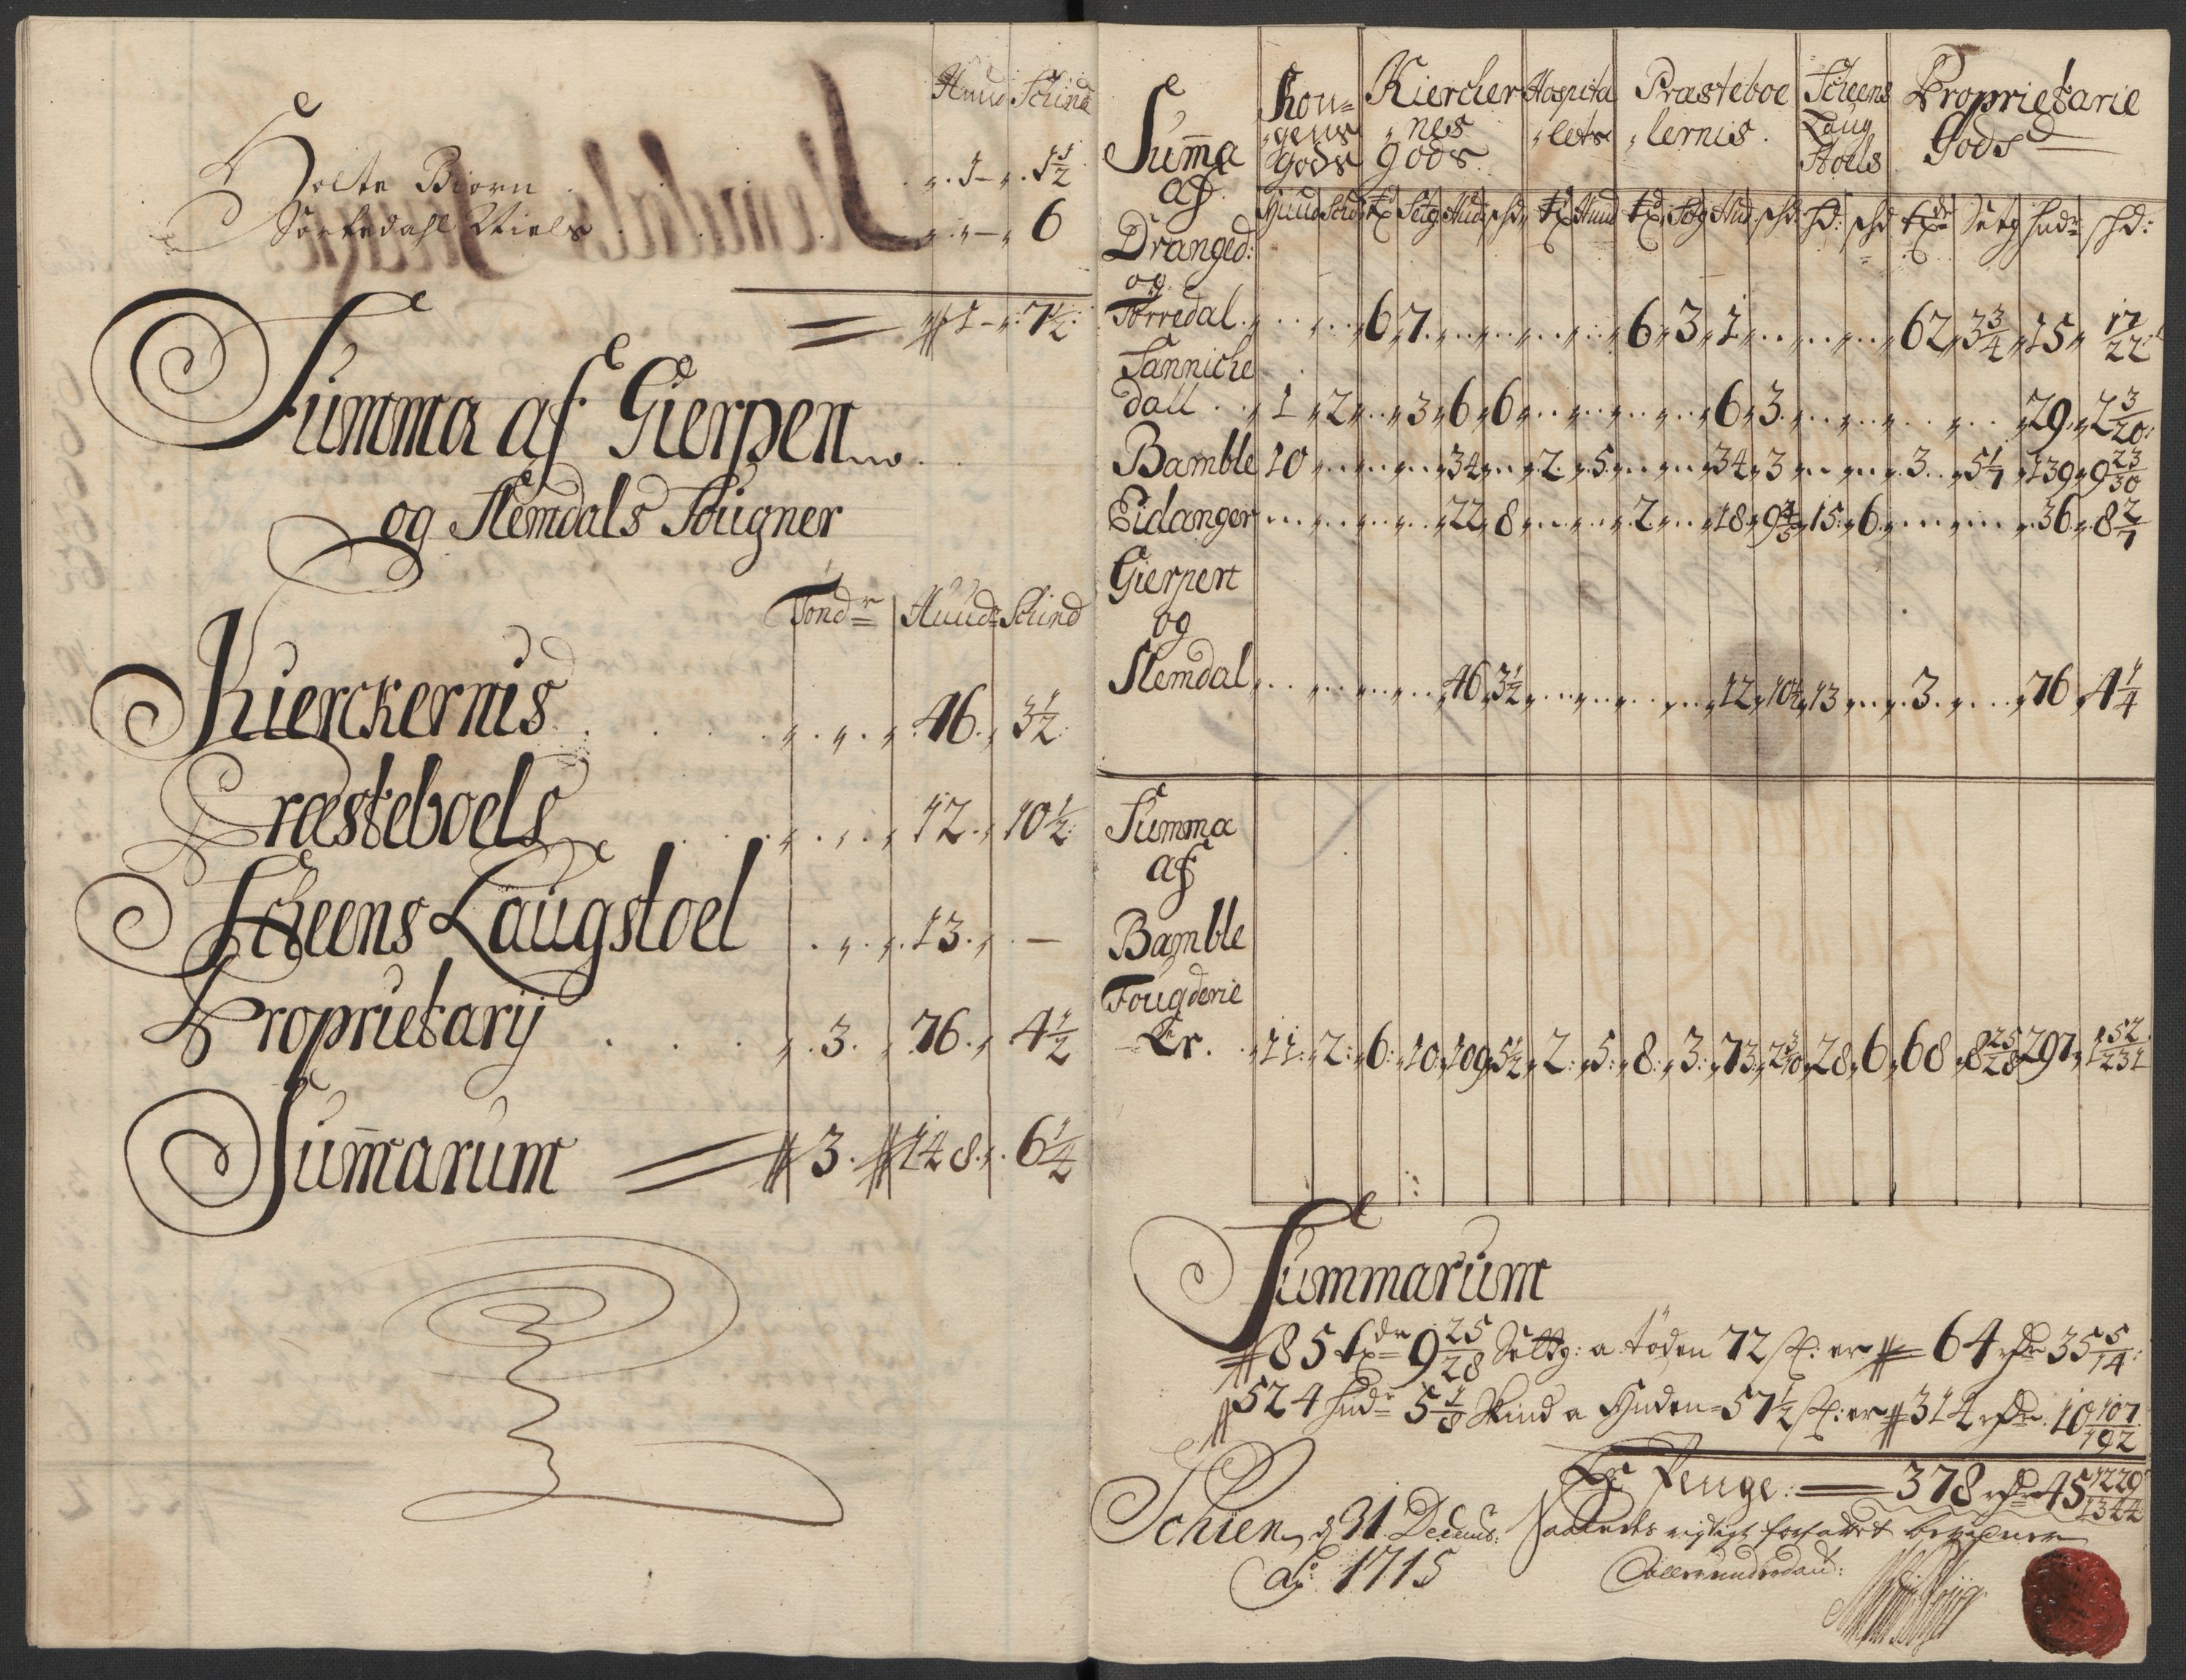 Huud Schind
Holte Biørn . . . 1 — 1½
Sørtedahl Niels . . . — 6
1 — 7½
Summa af Gierpen
og Slemdals Sougner
Tondr Huudr Schind
Kierckernis . . . 46 . 3½
Præsteboels . . . 12 . 10½
Scheens Laugstoel . . . 13 . —
Proprietarij . . . 3 . 76 . 4½
Sum̄arum 3 . 148 . 6¼
Sum̄a af Kongens gods Kierchernes gods Hospitalets Præsteboelernis Scheens Laug Stoels Proprietarie Gods
Huud Schd tdr Setg Hud schd tdr Hud tdr Setg Hud schd Hd: schd tdr Setg Hudr schd:
Dranged:
og
Tørredal . . . 6 7 . . . 6 3 1 . . . 62 3¾ 15 17/22
Sanniche
dall . . 1 2 . . 3 6 6 . . . 6 3 . . . 29 2 3/20
Bamble 10 . . . 34 . . 2 5 . . . 34 3 . . . 3 5 1/7 139 9 23/30
Eidanger . . . 22 8 . . . 2 . . 18 9⅘ 15 6 . . . 36 8 2/7
Gierpen
og
Slemdal . . . 46 3½ . . . 12 10½ 13 . . 3 . . . 76 4¼
Summa
af
Bamble
Fougderie
Er . . 11: 2: 6: 10: 109 5½ 2: 5: 8: 3: 73 2 3/10 28 6 68 8 25/28 297 1 52/231
Summarum
85 tdr 9 25/28 Settg: a tøden 72 s: er 64 rdr 35 5/14:
524 hudr 5⅛ Skind a Huden 57½ s: er 314 rdr 10 107/192
Er Penge: 378 rdr 45 1229/1344
Schien d 31 Decemb: Saaledes rigtigt forfattet bevidner
Ao 1715